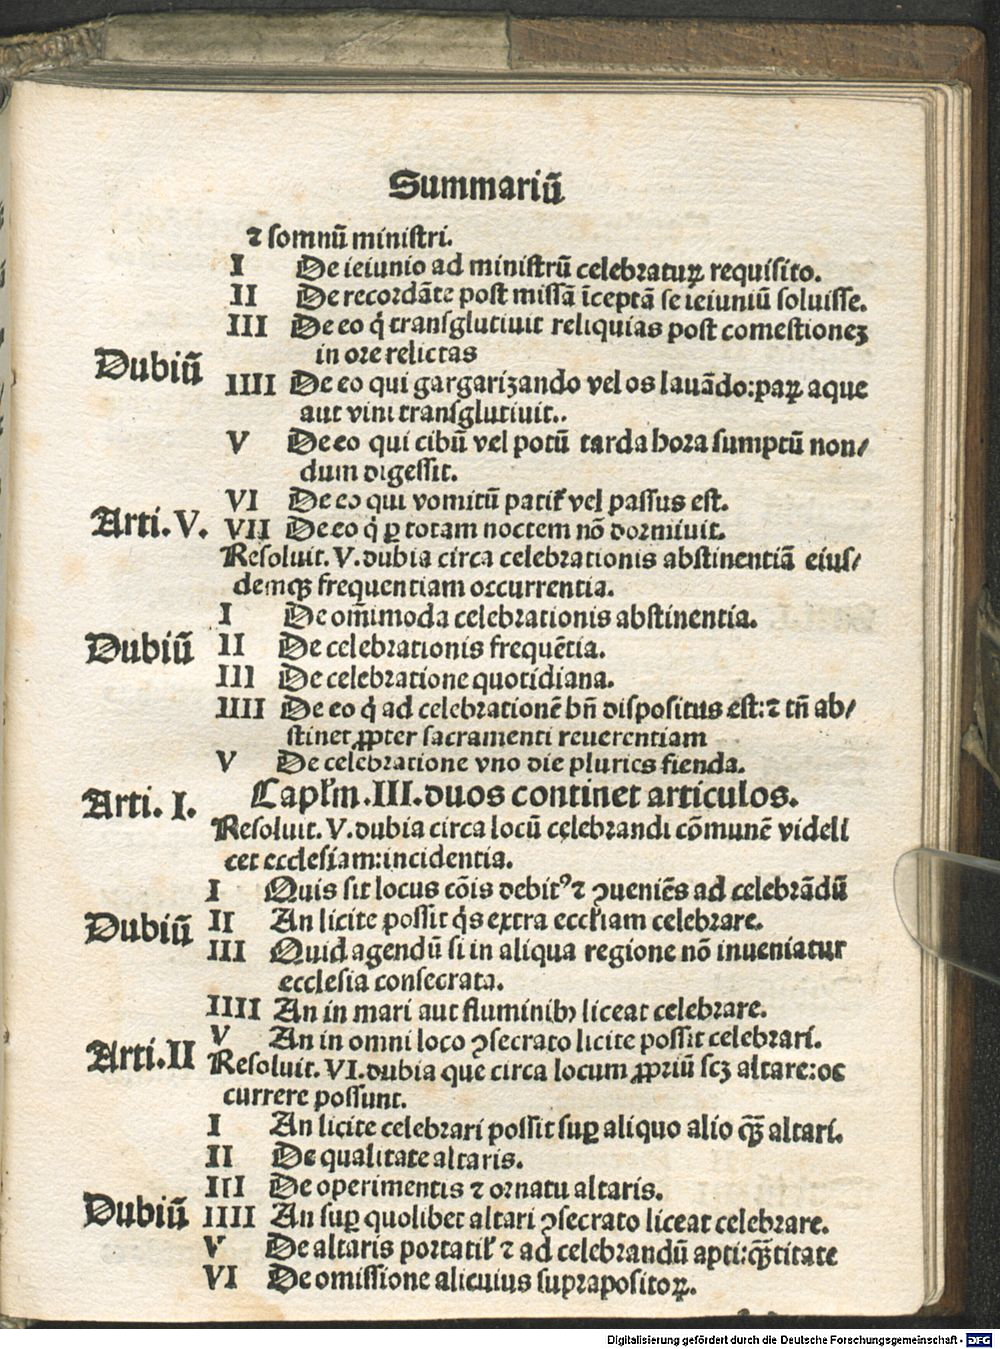 Summariū
⁊ somnū ministri.
I De ieiunio ad ministrū celebraturꝫ requisito.
II De recordāte post missā īceptā se ieiuniū soluisse.
III De eo q̇ transglutiuit reliquias post comestionez
in ore relictas
Dubiū
IIII De eo qui gargarizando vel os lauādo:paꝝ aque
aut vini transglutiuit..
V De eo qui cibū vel potū tarda hora sumptū non/
dum digessit.
VI De eo qui vomitū patit᷑ vel passus est.
Arti. V. VII De eo q̇ ꝑ totam noctem nō dormiuit.
Resoluit. V. dubia circa celebrationis abstinentiā eius/
demqꝫ frequentiam occurrentia.
I De om̄imoda celebrationis abstinentia.
Dubiū II De celebrationis frequētia.
III De celebratione quotidiana.
IIII De eo q̇ ad celebrationē bn̄ dispositus est:⁊ tn̄ ab/
stinet ꝓpter sacramenti reuerentiam
V De celebratione vno die pluries fienda.
Arti. I. Capl̓m .III. duos continet articulos.
Resoluit. V. dubia circa locū celebrandi cōmunē videli
cet ecclesiam:incidentia.
I Quis sit locus cōis debitꝰ ⁊ ꝯueniēs ad celebrādū
Dubiū II An licite possit q̇s extra eccl̓iam celebrare.
III Quid agendū si in aliqua regione nō inueniatur
ecclesia consecrata.
IIII An in mari aut fluminibꝫ liceat celebrare.
V An in omni loco ꝯsecrato licite possit celebrari.
Arti. II Resoluit. VI. dubia que circa locum ꝓpriū scꝫ altare:oc
currere possunt.
I An licite celebrari possit suꝑ aliquo alio qꝫ̄ altari.
II De qualitate altaris.
III De operimentis ⁊ ornatu altaris.
Dubiū IIII An suꝑ quolibet altari ꝯsecrato liceat celebrare.
V De altaris portatil̓ ⁊ ad celebrandū apti:qꝫ̄titate
VI De omissione alicuius suprapositoꝝ.
Digitalisierung gefördert durch die Deutsche Forschungsgemeinschaft - DFG